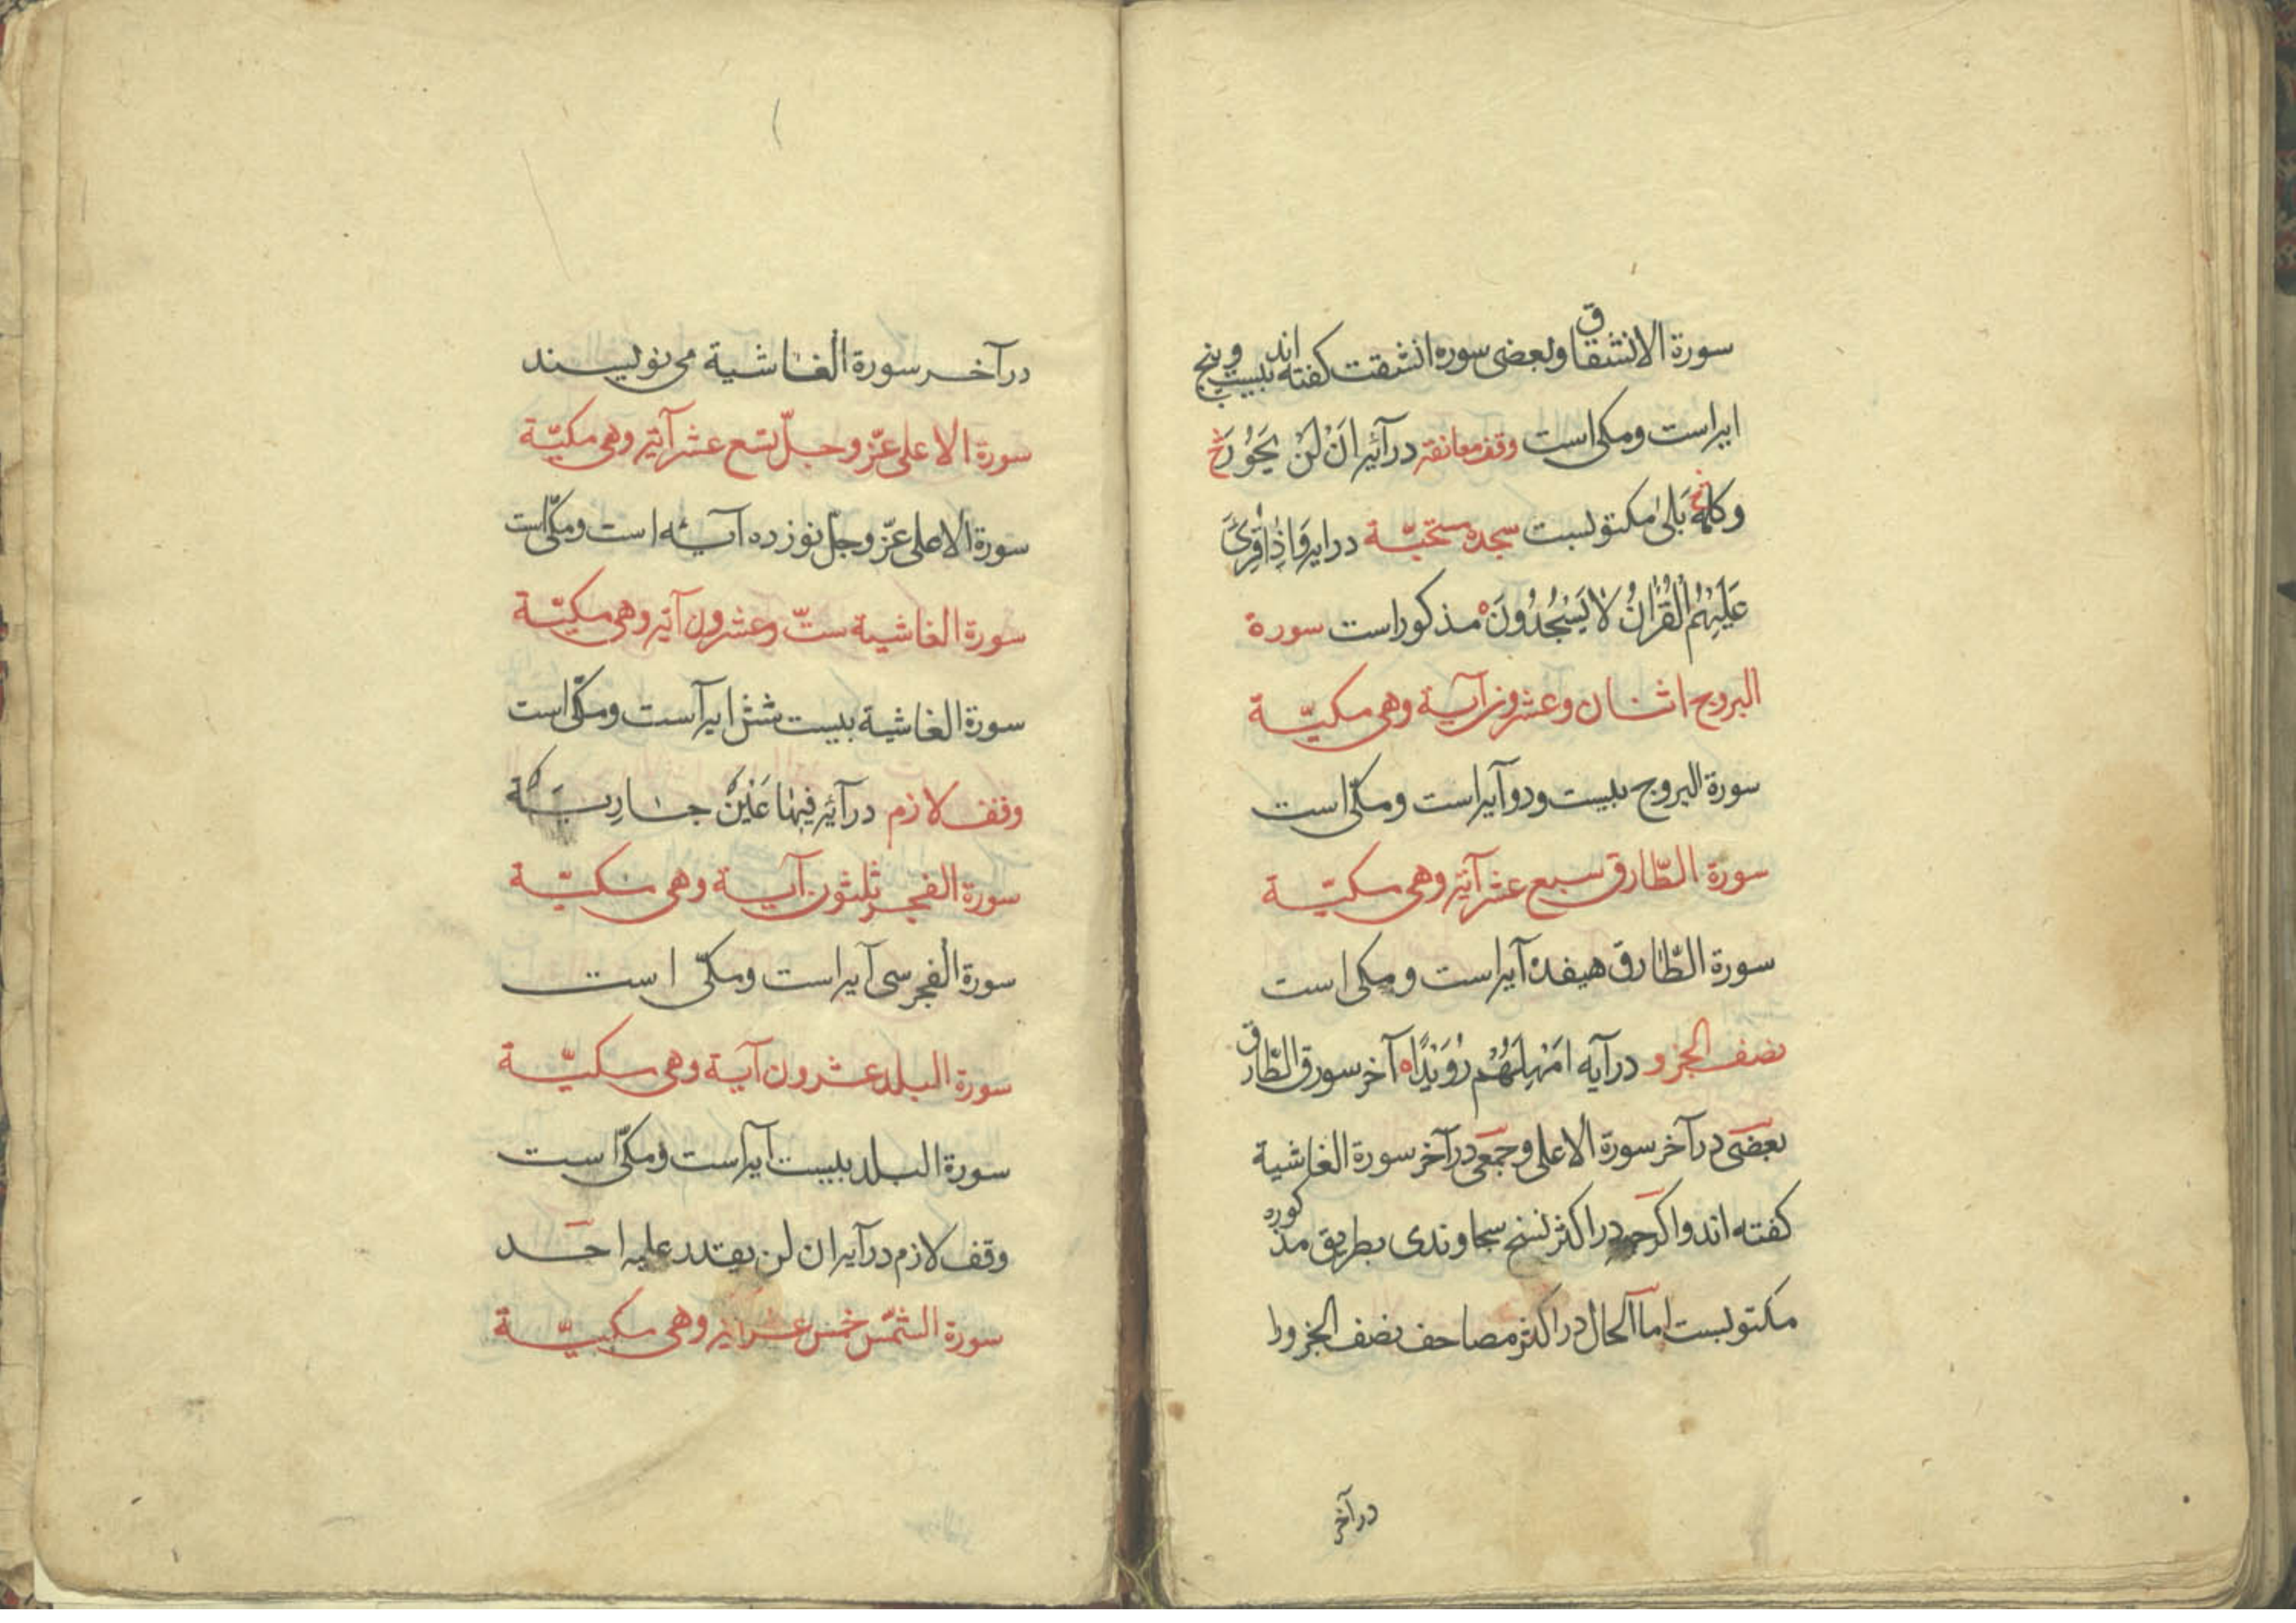 سورة الانشقاق وبعضی سوره انشقت کفته اند بیست وپنج
ایراست ومکی است وقف معانقه درآئیر اَنْ لَنْ یَحُوْرَ
وکلمهٔ بَلیٰ مکتوبست سجده مستحبّة درایر وَاِذَا قُرِیَٔ
عَلَیْهِمُ الْقُرْاٰنُ لَا یَسْجُدُوْنَ مذکوراست سورة
البروج اثنان وعشرون آیة وهی مکیّة
سورة البروج بیست ودوآیراست ومکّی است
سورة الطّارق سبع عشر آیة وهی مکیّة
سورة الطّارق هیفده آیراست ومکی است
نصف الجزو درآیه اَمْهِلْهُمْ رُوَیْدًا آخر سورة الطّارق
بعضی درآخر سورة الاعلی وجمعی درآخر سورة الغاشیة
کفته اند واکرچه دراکثر نسخ سجاوندی بطریق مذکوره
مکتوبست امّا الحال دراکثر مصاحف نصف الجزو را
درآخر
درآخر سورة الغاشیة می نویسند
سورة الاعلی عزّ وجلّ تسع عشر آیة وهی مکیّة
سورة الاعلی عزّ وجلّ نوزده آیه است ومکّی است
سورة الغاشیة ستّ وعشرون آیة وهی مکیّة
سورة الغاشیة بیست شش ایرآست ومکّی است
وقف لازم درآئر فیها عَیْنٌ جاریَة
سورة الفجر ثلثون آیة وهی مکیّة
سورة الفجر سی آیراست ومکّی است
سورة البلد عشرون آیة وهی مکیّة
سورة البلد بیست آیراست ومکّی است
وقف لازم درآیر ان لن یقدر علیه احد
سورة الشّمس خمس عشر آیة وهی مکیّة